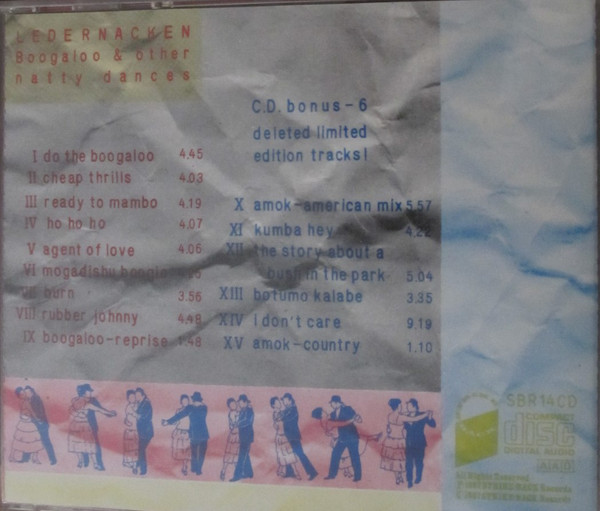 LEDERNACKEN
Boogaloo & other
natty dances
C.D. bonus-6
deleted limited
edition tracks!
I do the boogaloo 4.45
II cheap thrills 4.03
III ready to mambo 4.19
IV ho ho ho 4.07
V agent of love 4.06
VI mogadishu boogie
VII burn 3.56
VIII rubber johnny 4.48
IX boogaloo-reprise 1.48
X amok-american mix 5.57
XI kumba hey 4.22
XII the story about a
bush in the park 5.04
XIII botumo kalabe 3.35
XIV I don't care 9.19
XV amok-country 1.10
SBR14CD
COMPACT
disc
DIGITAL AUDIO
AAD
All Rights Reserved